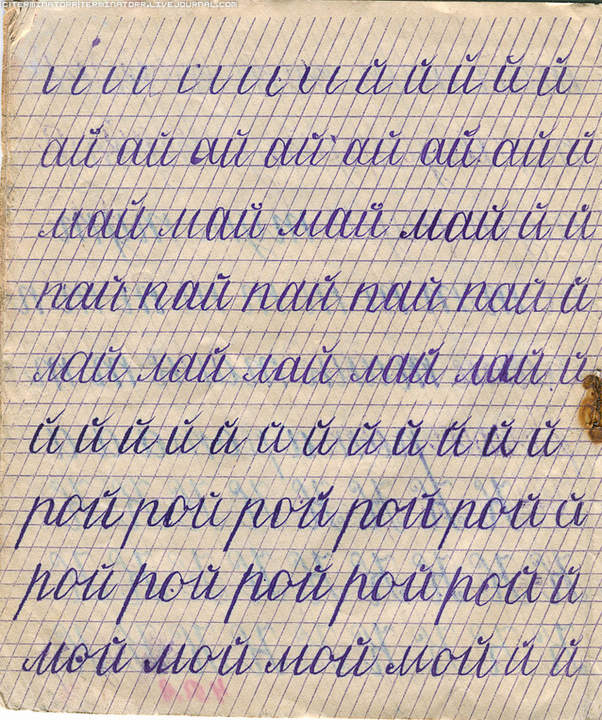 TERMINATORR.LIVEJOURNAL.COM
й й й й й
ай ай ай ай ай ай ай й
май май май май й й
пай пай пай пай пай й
лай лай лай лай лай й
й й й й й й й й й й й й
рой рой рой рой рой й
рой рой рой рой рой й
мой мой мой мой й й